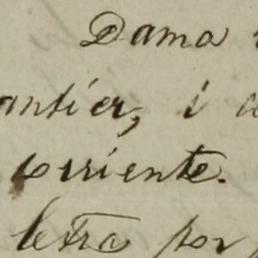 Dama
antier, i a
corriente.
letra por